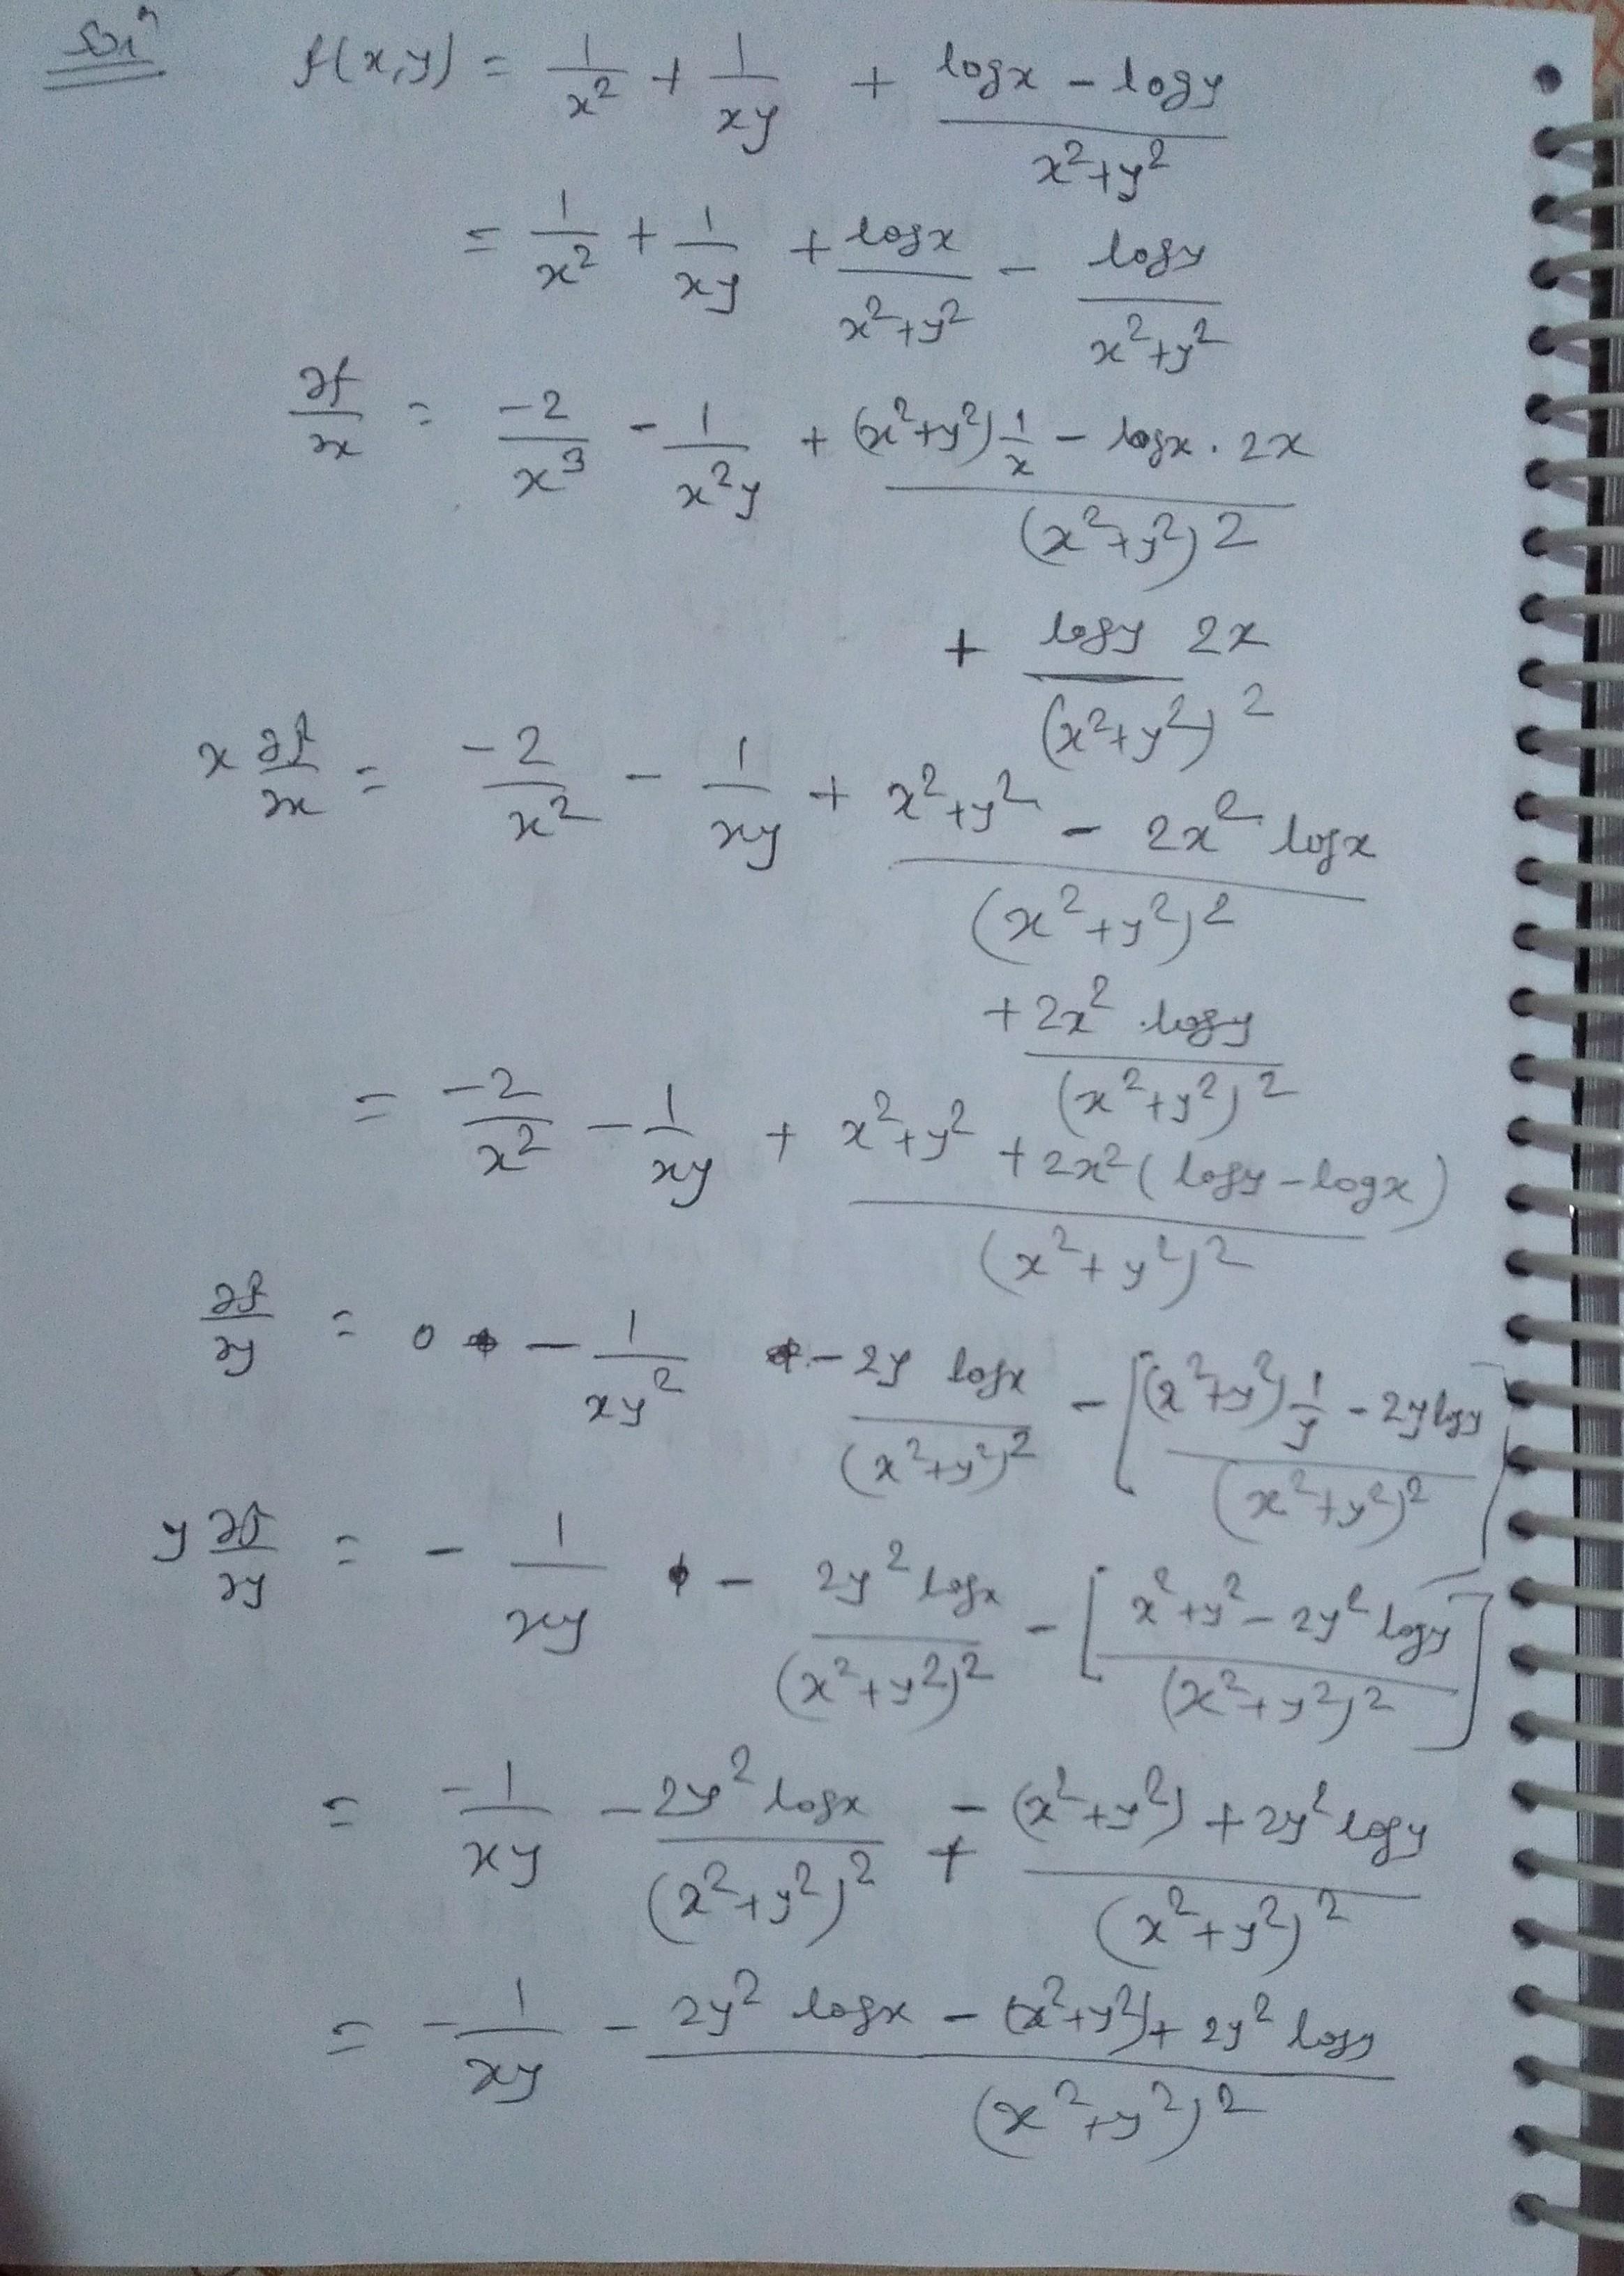 Solⁿ f(x,y) = 1/x² + 1/xy + (logx - logy)/(x²+y²)
= 1/x² + 1/xy + logx/(x²+y²) - logy/(x²+y²)
∂f/∂x = -2/x³ - 1/x²y + ((x²+y²) 1/x - logx · 2x)/(x²+y²)²
+ logy 2x/(x²+y²)²
x ∂f/∂x = -2/x² - 1/xy + (x²+y² - 2x² logx)/(x²+y²)²
+ 2x² · logy/(x²+y²)²
= -2/x² - 1/xy + (x²+y² + 2x² (logy - logx))/(x²+y²)²
∂f/∂y = 0 - 1/xy² - 2y logx/(x²+y²)² - [((x²+y²) 1/y - 2y logy)/(x²+y²)²]
y ∂f/∂y = - 1/xy - 2y² logx/(x²+y²)² - [(x²+y² - 2y² logy)/(x²+y²)²]
= -1/xy - 2y² logx/(x²+y²)² + (-(x²+y²) + 2y² logy)/(x²+y²)²
= - 1/xy - (2y² logx - (x²+y²) + 2y² logy)/(x²+y²)²